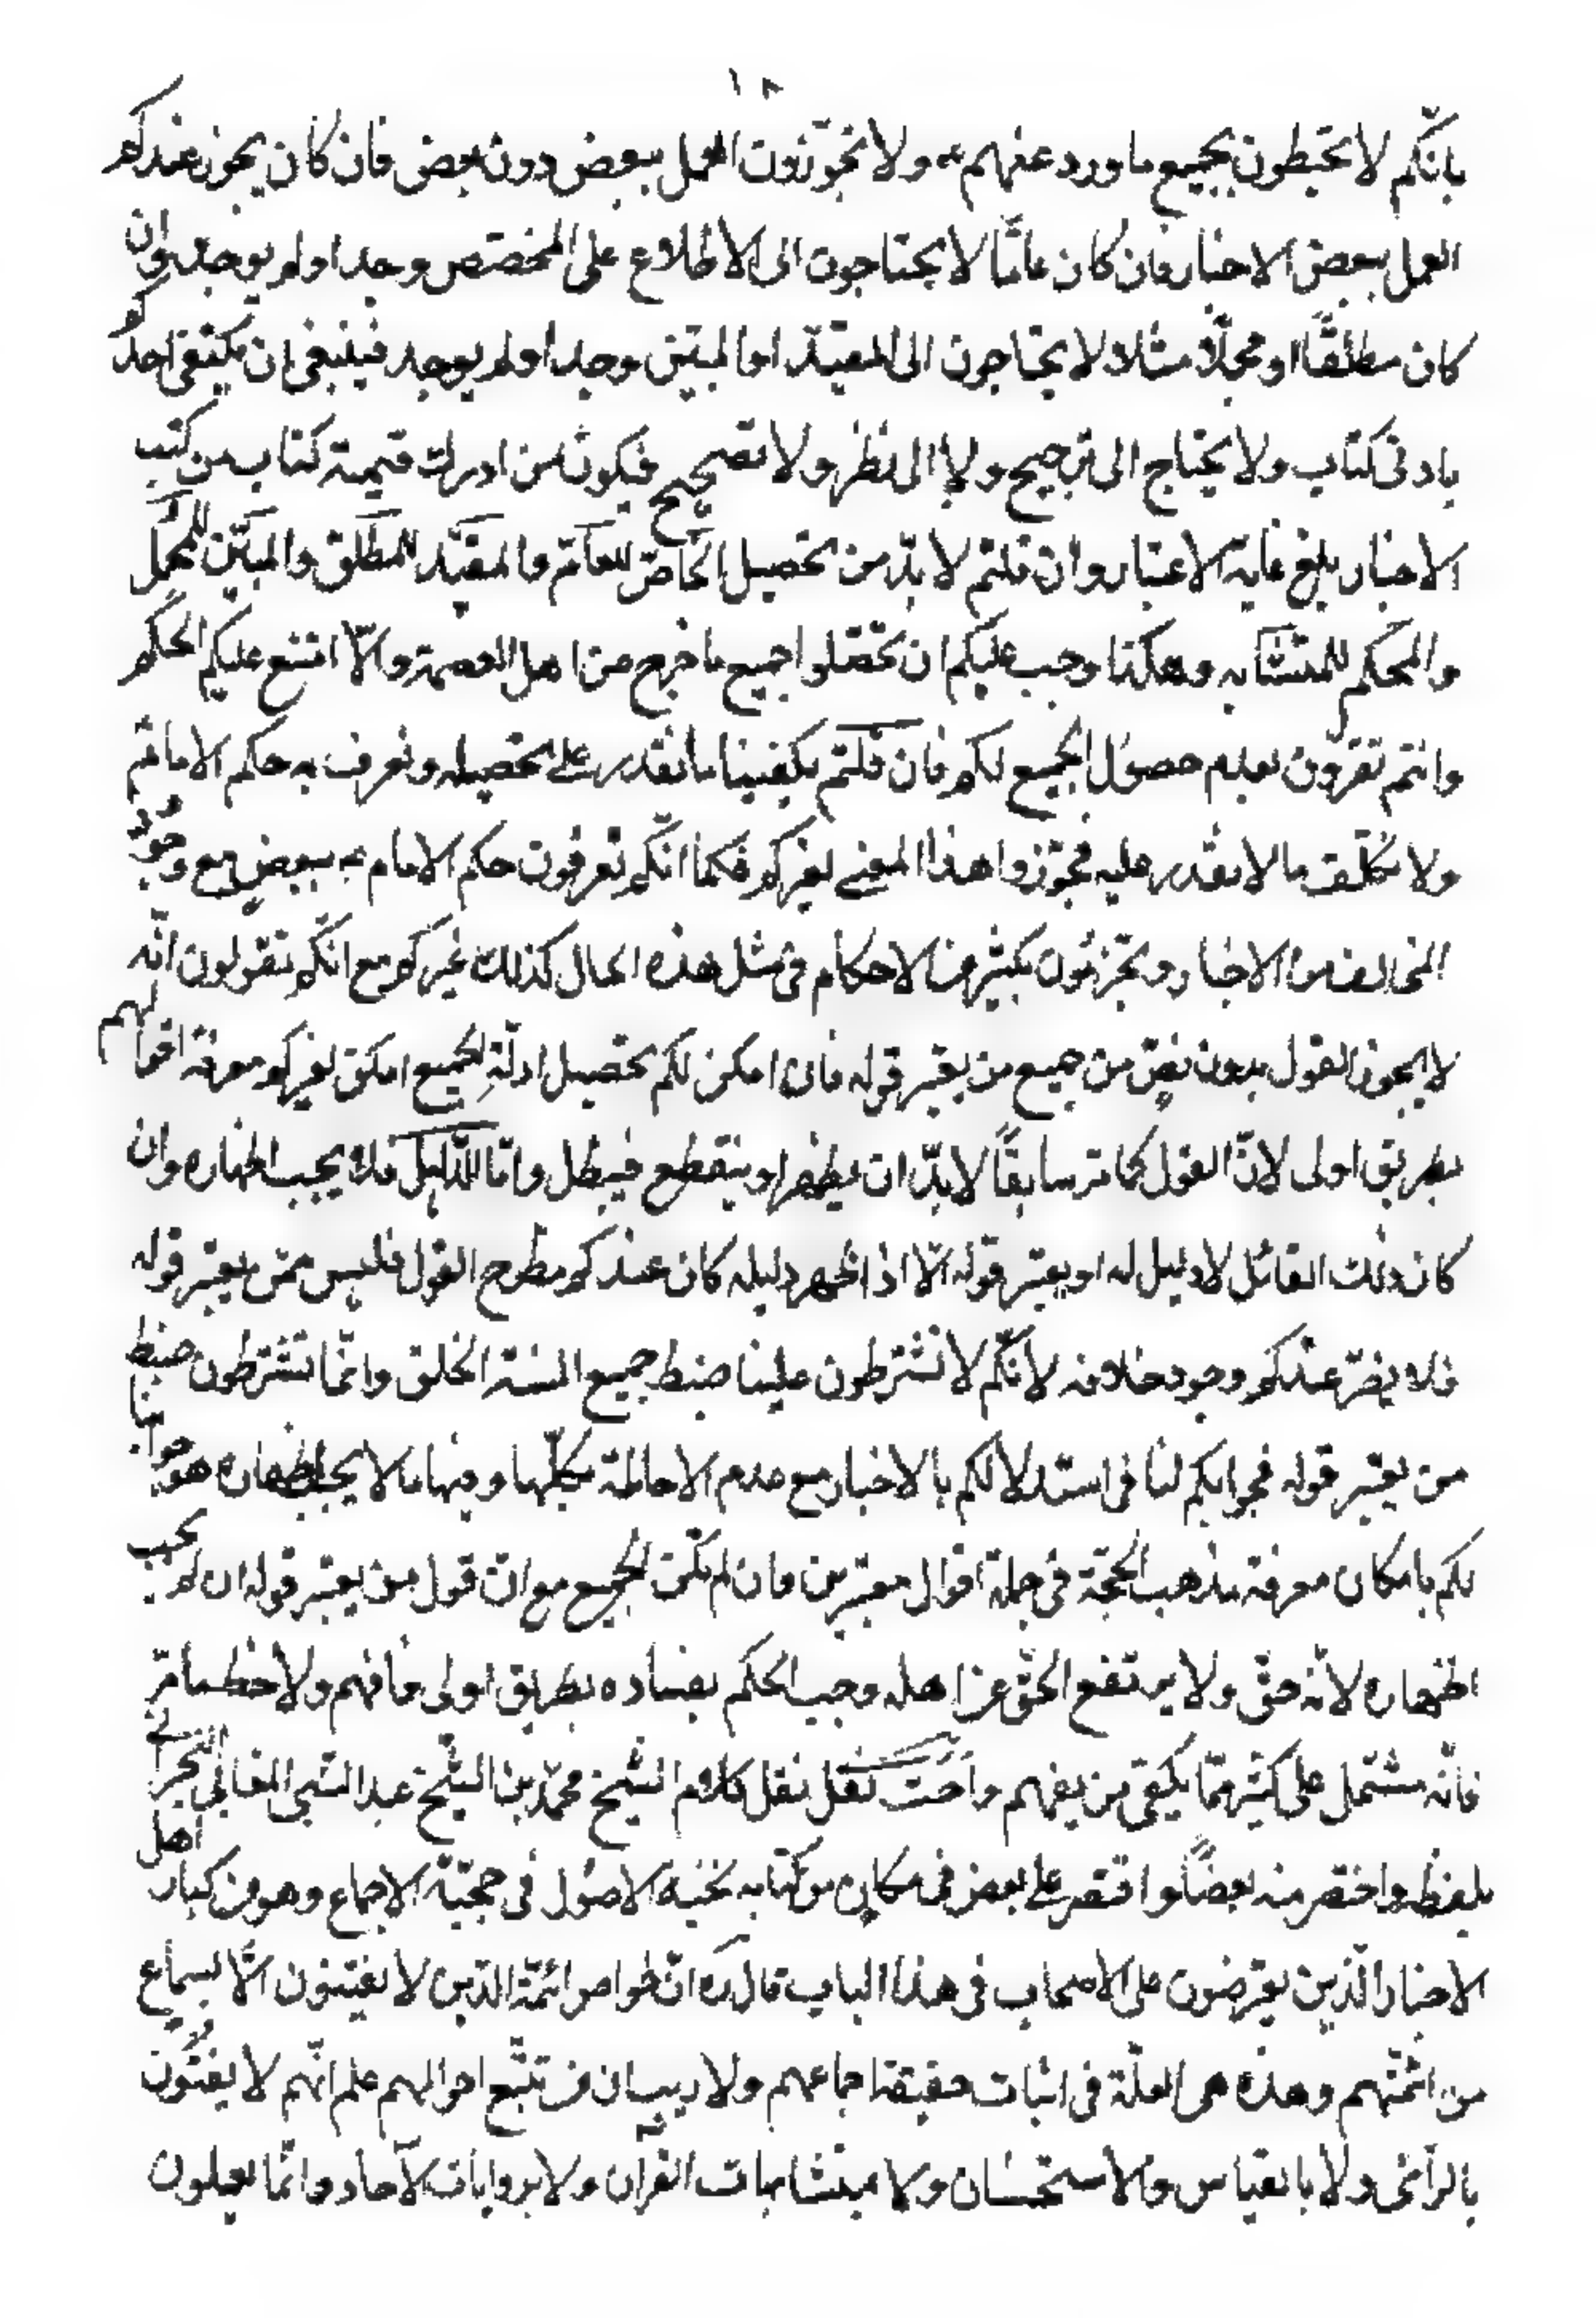 ١٨
بانّكم لا تحيطون بجميع ما ورد عنهم ع ولا تجوّزون العمل ببعض دون بعض فان كان يجوز عندكم
العمل ببعض الاخبار فان كان عامّا لا يحتاجون الى الاطلاع على المخصّص وجد او لم يوجد وان
كان مطلقًا او مجملًا مثلا ولا يحتاجون الى المقيّد او المبيّن وجد او لم يوجد فينبغي ان يكتفي احدكم
بادنى كتاب ولا يحتاج الى ترجيح ولا الى نظر ولا تصحيح فيكون من ادرك قيمة كتاب من كتب
الاخبار بلغ غاية الاعتبار وان قلتم لا بدّ من تحصيل الخاصّ للعامّ والمقيّد للمطلق والمبيّن للمجمل
والمحكم للمتشابه وهكذا وجب عليكم ان تحصّلوا جميع ما خرج من اهل العصمة والّا امتنع عليكم الحكم
وانتم تقرّون بعدم حصول الجميع لكم فان قلتم يكفينا ما نقدر على تحصيله ونعرف به حكم الامام ع
ولا نكلّف ما لا نقدر عليه فجوّزوا هذا المعنى لغيركم فكما انّكم تعرفون حكم الامام ع ببعض مع وجود
المخالف من الاخبار وتجزئون بكثير من الاحكام في مثل هذه الحال كذلك غيركم مع انّكم تقولون انّه
لا يجوز القول بدون نصّ من جميع من يعتبر قوله فان امكن لكم تحصيل ادلّة الجميع امكن لغيركم معرفة اقوالهم
بطريق اولى لانّ القول كما مر سابقًا لا بدّ ان يظهر او ينقطع فيبطل وامّا الدّليل فلا يجب اظهاره وان
كان ذلك القائل لا دليل له او يعتبر قوله الّا اذا ظهر دليله كان عندكم مطرح القول فليس ممّن يعتبر قوله
فلا يضرّ عندكم وجود خلافه لانّكم لا تشترطون علينا ضبط جميع السنة الخلق وانّما تشترطون ضبط
من يعتبر قوله فجوابكم لنا في استدلالكم بالاخبار مع عدم الاحاطة بكلّها وفيها ما لا يجب اظهاره هو جوابنا
لكم بامكان معرفة مذهب الحجّة في جملة اقوال معتبرين وان لم يكن الجميع مع انّ قول من يعتبر قوله ان لم يجب
اظهاره لانّه حقّ ولا يرتفع الحقّ عن اهله وجب الحكم بفساده بطريق اولى فافهم ولاحظ ما مرّ
فانّه مشتمل على كثير ممّا يكفي من يفهم واحببت نقل كلام الشيخ محمّد بن الشيخ عبد النبي المقابي البحراني
بلفظه واختصر منه بعضًا واقتصر على بعض في مكان من كتابه نخبة الاصول في حجيّة الاجماع وهو من كبار اهل
الاخبار الّذين يعترضون على الاصحاب في هذا الباب قال ره انّ خواص ائمّة الدّين لا يفتون الّا بسماع
من ائمّتهم وهذه هي العلّة في اثبات حقيقة اجماعهم ولا ريب ان من تتبّع احوالهم علم انّهم لا يفتون
بالرأي ولا بالقياس والاستحسان ولا بمتشابهات القران ولا بروايات الآحاد وانّما يعملون